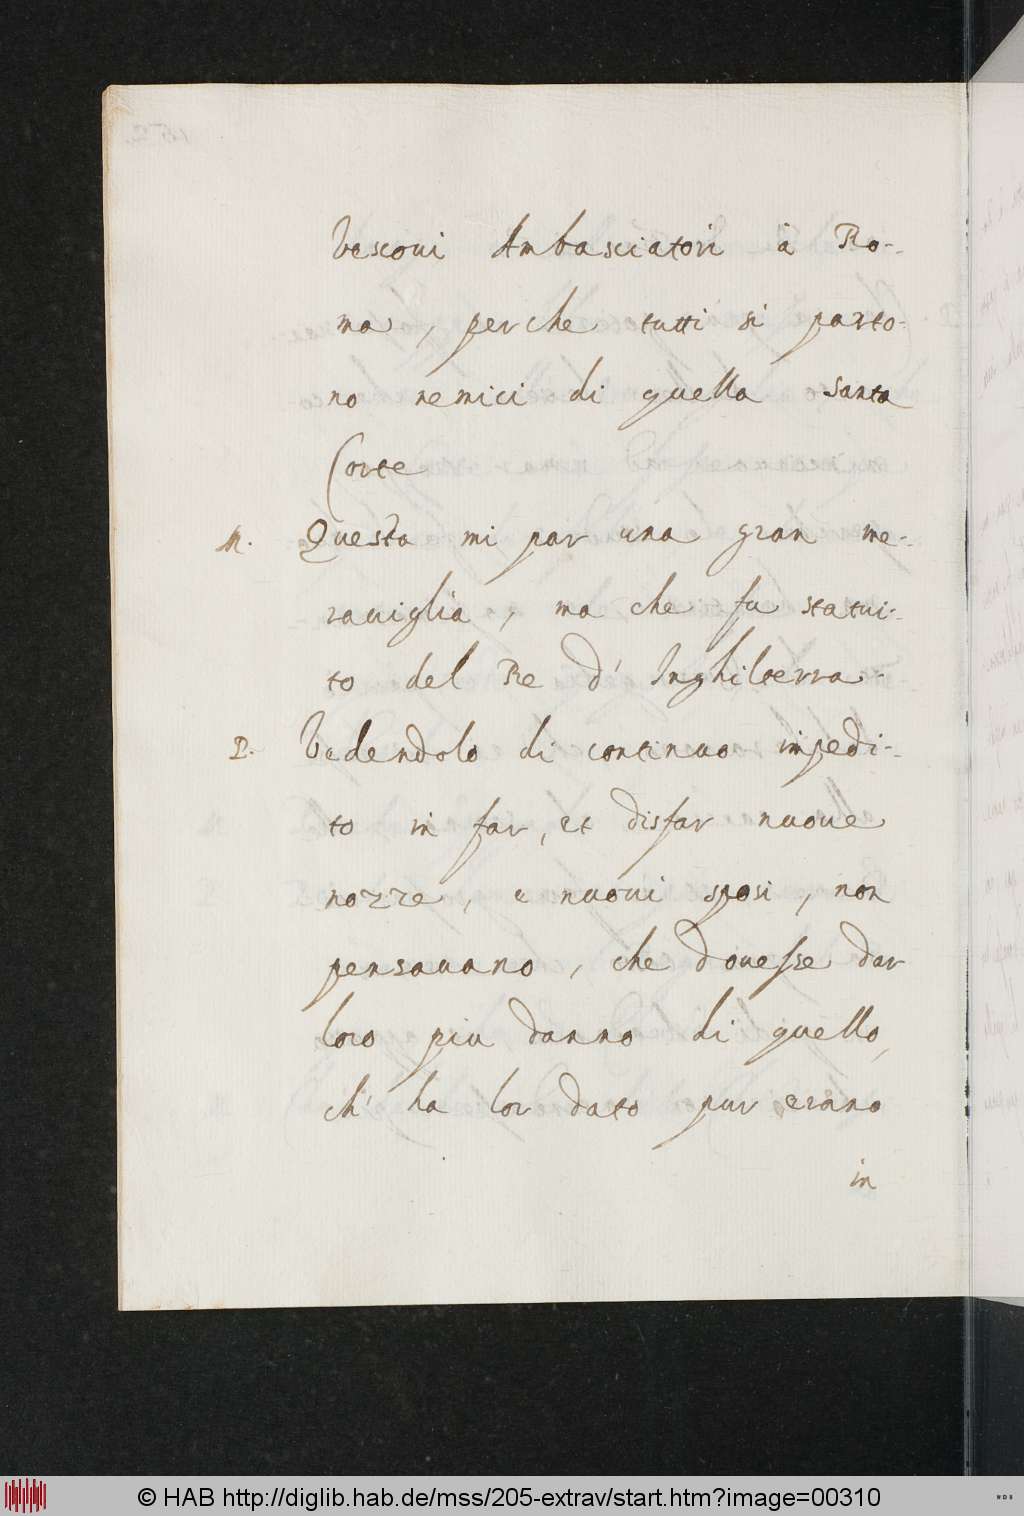 Vescoui Ambasciatori à Ro-
ma, perche tutti si parto-
no nemici di quella santa
Corte
M. Questa mi par una gran me-
rauiglia, ma che fu statui-
to del Re d' Inghilterra.
P. Vedendolo di continuo impedi-
to in far, et disfar nuoue
nozze, e nuoui sposi, non
pensauano, che douesse dar
loro piu danno di quello,
ch' ha lor dato pur erano
in
© HAB http://diglib.hab.de/mss/205-extrav/start.htm?image=00310